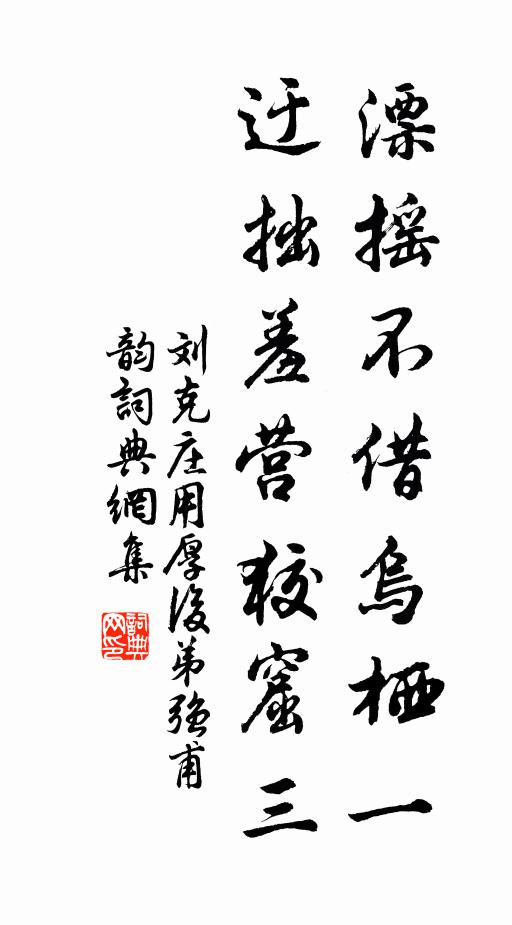 漂摇不借乌栖一
迂拙羞营狡窟三
刘克庄用厚后弟强甫
韵词典网集
词典
网印